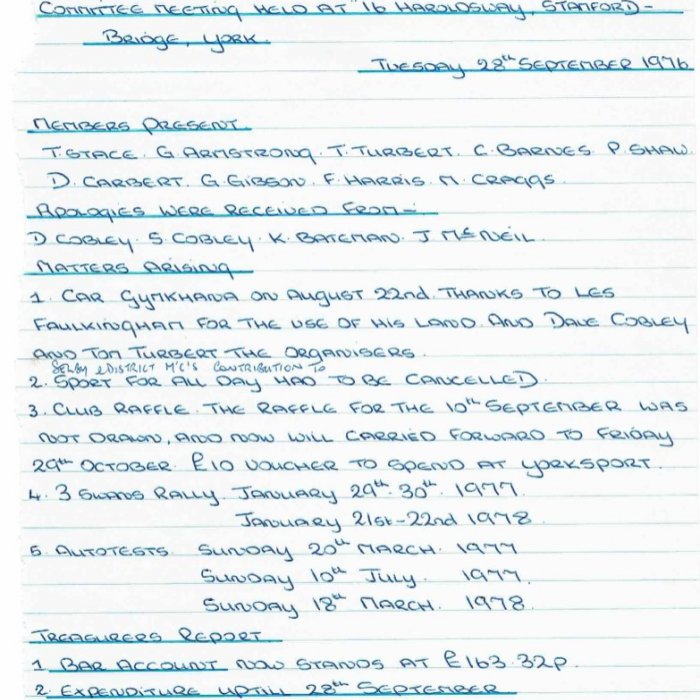 COMMITTEE MEETING HELD AT 16 HAROLDSWAY, STAMFORD-
BRIDGE, YORK.
TUESDAY 28th SEPTEMBER 1976
MEMBERS PRESENT
T. STACE. G. ARMSTRONG. T. TURBERT. C. BARNES. P. SHAW.
D. CARBERT. G. GIBSON. F. HARRIS. M. CRAGGS.
APOLOGIES WERE RECEIVED FROM-
D. COBLEY. S. COBLEY. K. BATEMAN. J McNEIL.
MATTERS ARISING
1. CAR GYMKHANA ON AUGUST 22nd. THANKS TO LES
FAULKINGHAM FOR THE USE OF HIS LAND. AND DAVE COBLEY
AND TOM TURBERT THE ORGANISERS.
SELBY & DISTRICT M'C'S CONTRIBUTION TO
2. SPORT FOR ALL DAY HAD TO BE CANCELLED.
3. CLUB RAFFLE. THE RAFFLE FOR THE 10th SEPTEMBER WAS
NOT DRAWN, AND NOW WILL CARRIED FORWARD TO FRIDAY
29th OCTOBER. £10 VOUCHER TO SPEND AT YORKSPORT.
4. 3 SWANS RALLY. JANUARY 29th-30th. 1977.
JANUARY 21st-22nd 1978.
5. AUTOTESTS. SUNDAY 20th MARCH. 1977
SUNDAY 10th JULY. 1977.
SUNDAY 18th MARCH. 1978.
TREASURERS REPORT
1. BAR ACCOUNT NOW STANDS AT £163.32p.
2. EXPENDITURE UPTILL 28th SEPTEMBER